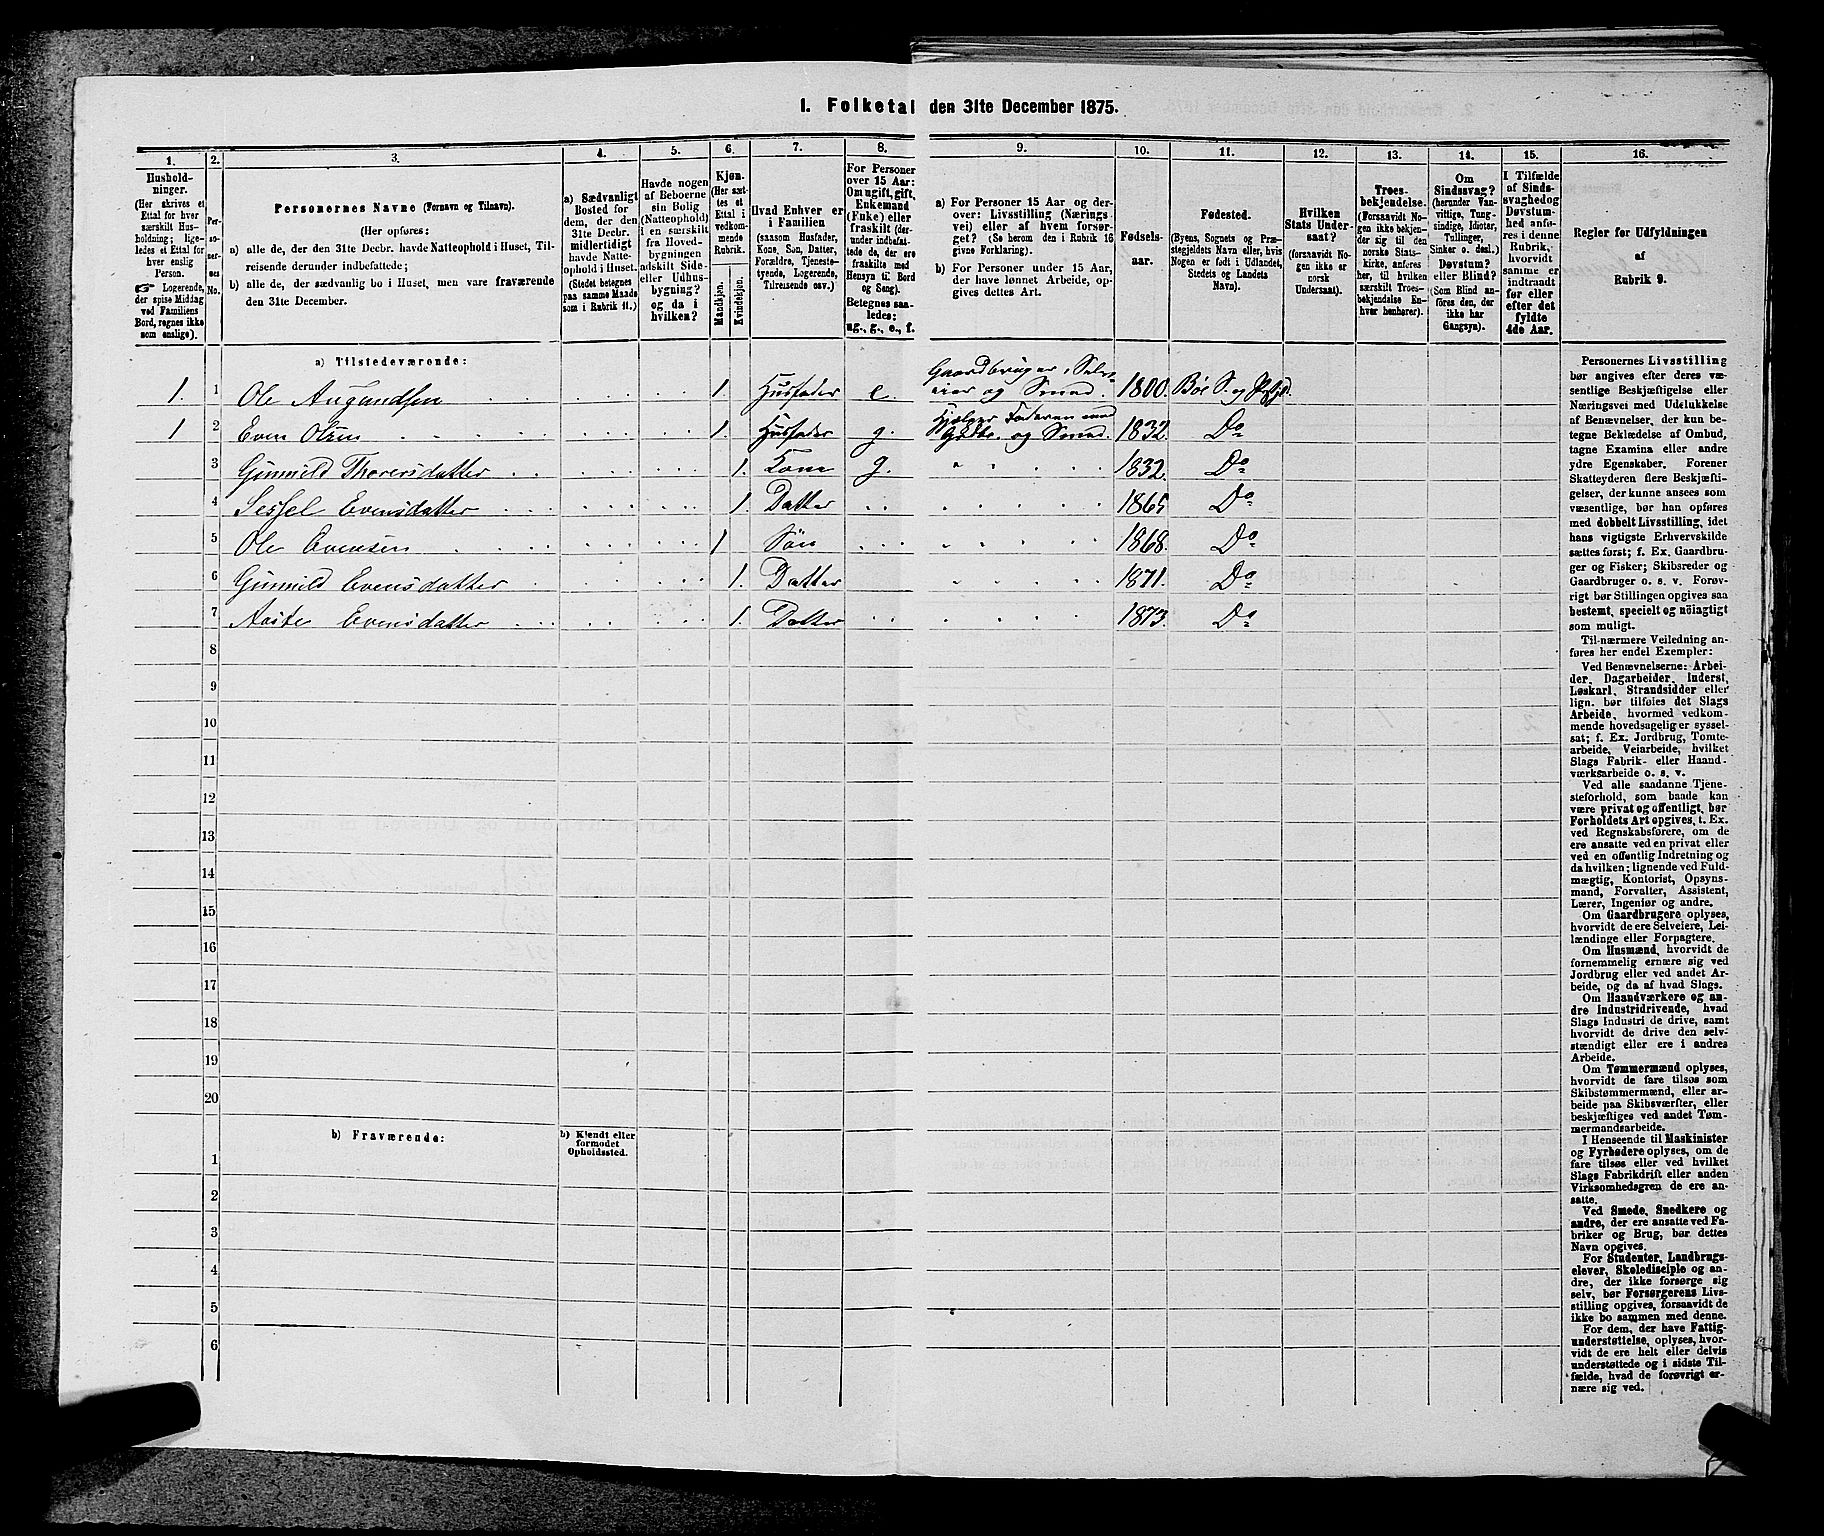 1. Folketal den 31te December 1875.
1.
Hushold-
ninger.
(Her skrives et
Ettal for hver
særskilt Hus-
holdning; lige-
ledes et Ettal for
hver enslig
Person.
☞ Logerende,
der spise Middag
ved Familiens
Bord, regnes ikke
som enslige).
2.
Per-
so-
ner-
nes
No.
3.
Personernes Navne (Fornavn og Tilnavn).
(Her opføres:
a) alle de, der den 31te Decbr. havde Natteophold i Huset, Til-
reisende derunder indbefattede;
b) alle de, der sædvanlig bo i Huset, men vare fraværende
den 31te December.
4.
a) Sædvanligt
Bosted for
dem, der den
31te Decbr.
midlertidigt
havde Natte-
ophold i Huset.
(Stedet betegnes
paa samme Maade
som i Rubrik 11.)
5.
Havde nogen
af Beboerne
sin Bolig
(Natteophold)
i en særskilt
fra Hoved-
bygningen
adskilt Side-
eller Udhus-
bygning?
og da i
hvilken?
6.
Kjøn.
(Her sæt-
tes et
Ettal i
vedkom-
mende
Rubrik.
Mandkjøn.
Kvindekjøn.
7.
Hvad Enhver er
i Familien
(saasom Husfader,
Kone, Søn, Datter,
Forældre, Tjeneste-
tyende, Logerende,
Tilreisende osv.)
8.
For Personer
over 15 Aar:
Om ugift, gift,
Enkemand
(Enke) eller
fraskilt (der-
under indbefat-
tede de, der ere
fraskilte med
Hensyn til Bord
og Seng).
Betegnes saa-
ledes:
ug., g., e., f.
9.
a) For Personer 15 Aar og der-
over: Livsstilling (Nærings
vei) eller af hvem forsør-
get? (Se herom den i Rubrik 16
givne Forklaring).
b) For Personer under 15 Aar,
der have lønnet Arbeide, op-
gives dettes Art.
10.
Fødsels-
aar.
11.
Fødested.
(Byens, Sognets og Præ-
stegjeldets Navn eller, hvis
Nogen er født i Udlandet,
Stedets og Landets
Navn).
12.
Hvilken
Stats Under-
saat?
(forsaavidt No-
gen ikke er
norsk
Undersaat).
13.
Troes-
bekjendelse.
(Forsaavidt No-
gen ikke bekjen-
der sig til den
norske Stats-
kirke, anføres
her, til hvilken
særskilt Troes-
bekjendelse En-
hver henhører).
14.
Om
Sindssvag?
(herunder Van-
vittige, Tung-
sindige, Idioter,
Tullinger,
Sinker o. desl.)
Døvstum?
eller Blind?
(Som Blind an-
føres den, der
ikke har
Gangsyn).
15.
I Tilfælde
af Sinds-
svaghed og
Døvstum-
hed anfø-
res i denne
Rubrik,
hvorvidt
samme er
indtraadt
før eller
efter det
fyldte
4de Aar.
16.
Regler for Udfyldningen
af
Rubrik 9.
a) Tilstedeværende:
1. 1 Ole Augundsen 1. Husfader e. Gaardbruger, Selv-
eier og Smed. 1800. Bøe S. og Pgjd.
1 2 Even Olsen 1. Husfader g. Hjælper Faderen med
Gdbr. og Smed. 1832. Do
3 Gunnild Thorersdatter 1. Kone g. 1832. Do
4 Sessel Evensdatter 1. Datter 1865 Do
5 Ole Evensen 1 Søn 1868. Do
6 Gunnild Evensdatter 1. Datter 1871. Do
7 Aaste Evensdatter 1. Datter 1873. Do
8
9
10
11
12
13
14
15
16
17
18
19
20
b) Fraværende:
b) Kjendt eller
formodet
Opholdssted.
1
2
3
4
5
6
Personernes Livsstilling
bør angives efter deres væ-
sentlige Beskjæftigelse eller
Næringsvei med Udelukkelse
af Benævnelser, der kun be-
tegne Beklædelse af Ombud,
tagne Examina eller andre
ydre Egenskaber. Forener
Skatteyderen flere Beskjæfti-
gelser, der kunne ansees som
væsentlige, bør han opføres
med dobbelt Livsstilling, idet
hans vigtigste Erhvervskilde
sættes først; f. Ex. Gaardbru-
ger og Fisker; Skibsreder og
Gaardbruger o. s. v. Forøv-
rigt bør Stillingen opgives saa
bestemt, specielt og nöiagtigt
som muligt.
Til nærmere Veiledning an-
føres her endel Exempler:
Ved Benævnelserne: Arbei-
der, Dagarbeider, Inderst,
Løskarl, Strandsidder eller
lign. bør tilføies det Slags
Arbeide, hvormed vedkom-
mende hovedsagelig er syssel-
sat; f. Ex. Jordbrug, Tomte-
arbeide, Veiarbeide, hvilket
Slags Fabrik- eller Haand-
værksarbeide o. s. v.
Ved alle saadanne Tjene-
steforhold, som baade kan
være privat og offentligt, bør
Forholdets Art opgives, t. Ex.
ved Regnskabsførere, om de
ere ansatte ved en privat eller
ved en offentlig Indretning og
da hvilken; lignende ved Fuld-
mægtig, Kontorist, Opsyns-
mand, Forvalter, Assistent,
Lærer, Ingeniør og andre.
Om Gaardbrugere oplyses,
hvorvidt de ere Selveiere, Lei-
lændinge eller Forpagtere.
Om Husmænd, hvorvidt de
fornemmelig ernære sig ved
Jordbrug eller ved andet Ar-
beide, og da af hvad Slags.
Om Haandværkere og an-
dre Industridrivende, hvad
Slags Industri de drive, samt
hvorvidt de drive den selv-
stændigt eller ere i andres
Arbeide.
Om Tømmermænd oplyses,
hvorvidt de fare tilsøs som
Skibstømmermænd, eller ar-
beide paa Skibsværfter, eller
beskjæftiges ved andet Tøm-
mermandsarbeide.
I Henseende til Maskinister
og Fyrbødere oplyses, om de
fare tilsøs eller ved hvilket
Slags Fabrikdrift eller anden
Virksomhedsgren de ere an-
satte.
Ved Smede, Snedkere og
andre, der ere ansatte ved Fa-
briker og Brug, bør dettes
Navn opgives.
For Studenter, Landbrugs-
elever, Skoledisciple og an-
dre, der ikke forsørge sig
selv, bør Forsørgerens Livs-
stilling opgives, forsaavidt de
ikke bo sammen med denne.
For dem, der have Fattig-
understøttelse, oplyses, hvor-
vidt de ere helt eller delvis
understøttede og i sidste Til-
fælde, hvad de forøvrigt er-
nære sig ved.